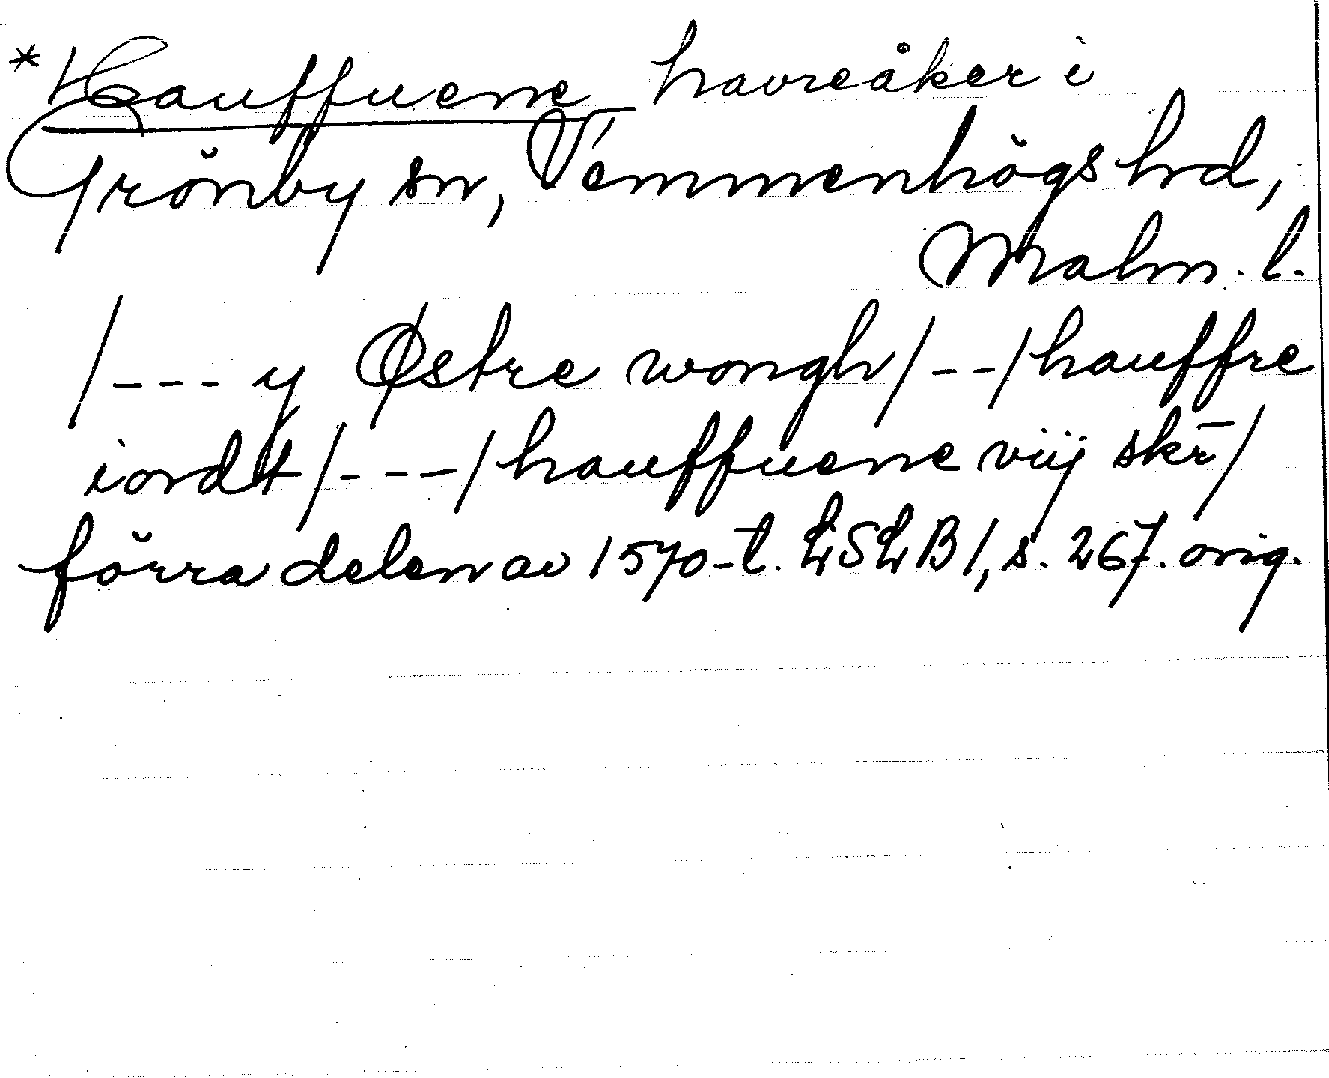 * Hauffuene havreåker i
Grönby sn, Vemmenhögs hd,
Malm. l.
/--- y Østre wongh/--/hauffre
iordt/---/hauffuene viij skr̄/
förra delen av 1570-t. LSLB1, s. 267. orig.